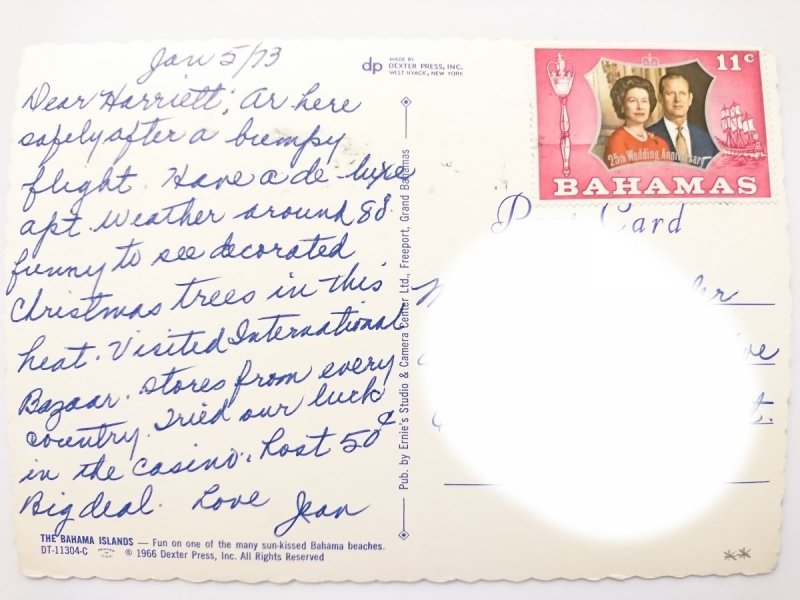 Jan 5/73
dp MADE BY
DEXTER PRESS, INC.
WEST NYACK, NEW YORK
Dear Harriett; Ar. here
safely after a bumpy
flight. Have a de-luxe
apt. Weather around 80°
funny to see decorated
Christmas trees in this
heat. Visited International
Bazaar. Stores from every
country. Tried our luck
in the casino. Lost 50¢
Big deal. Love Jean
THE BAHAMA ISLANDS — Fun on one of the many sun-kissed Bahama beaches.
DT-11304-C © 1966 Dexter Press, Inc. All Rights Reserved
Pub. by Ernie's Studio & Camera Center Ltd., Freeport, Grand Bahamas
11c
25th Wedding Anniversary
BAHAMAS
Post Card
**